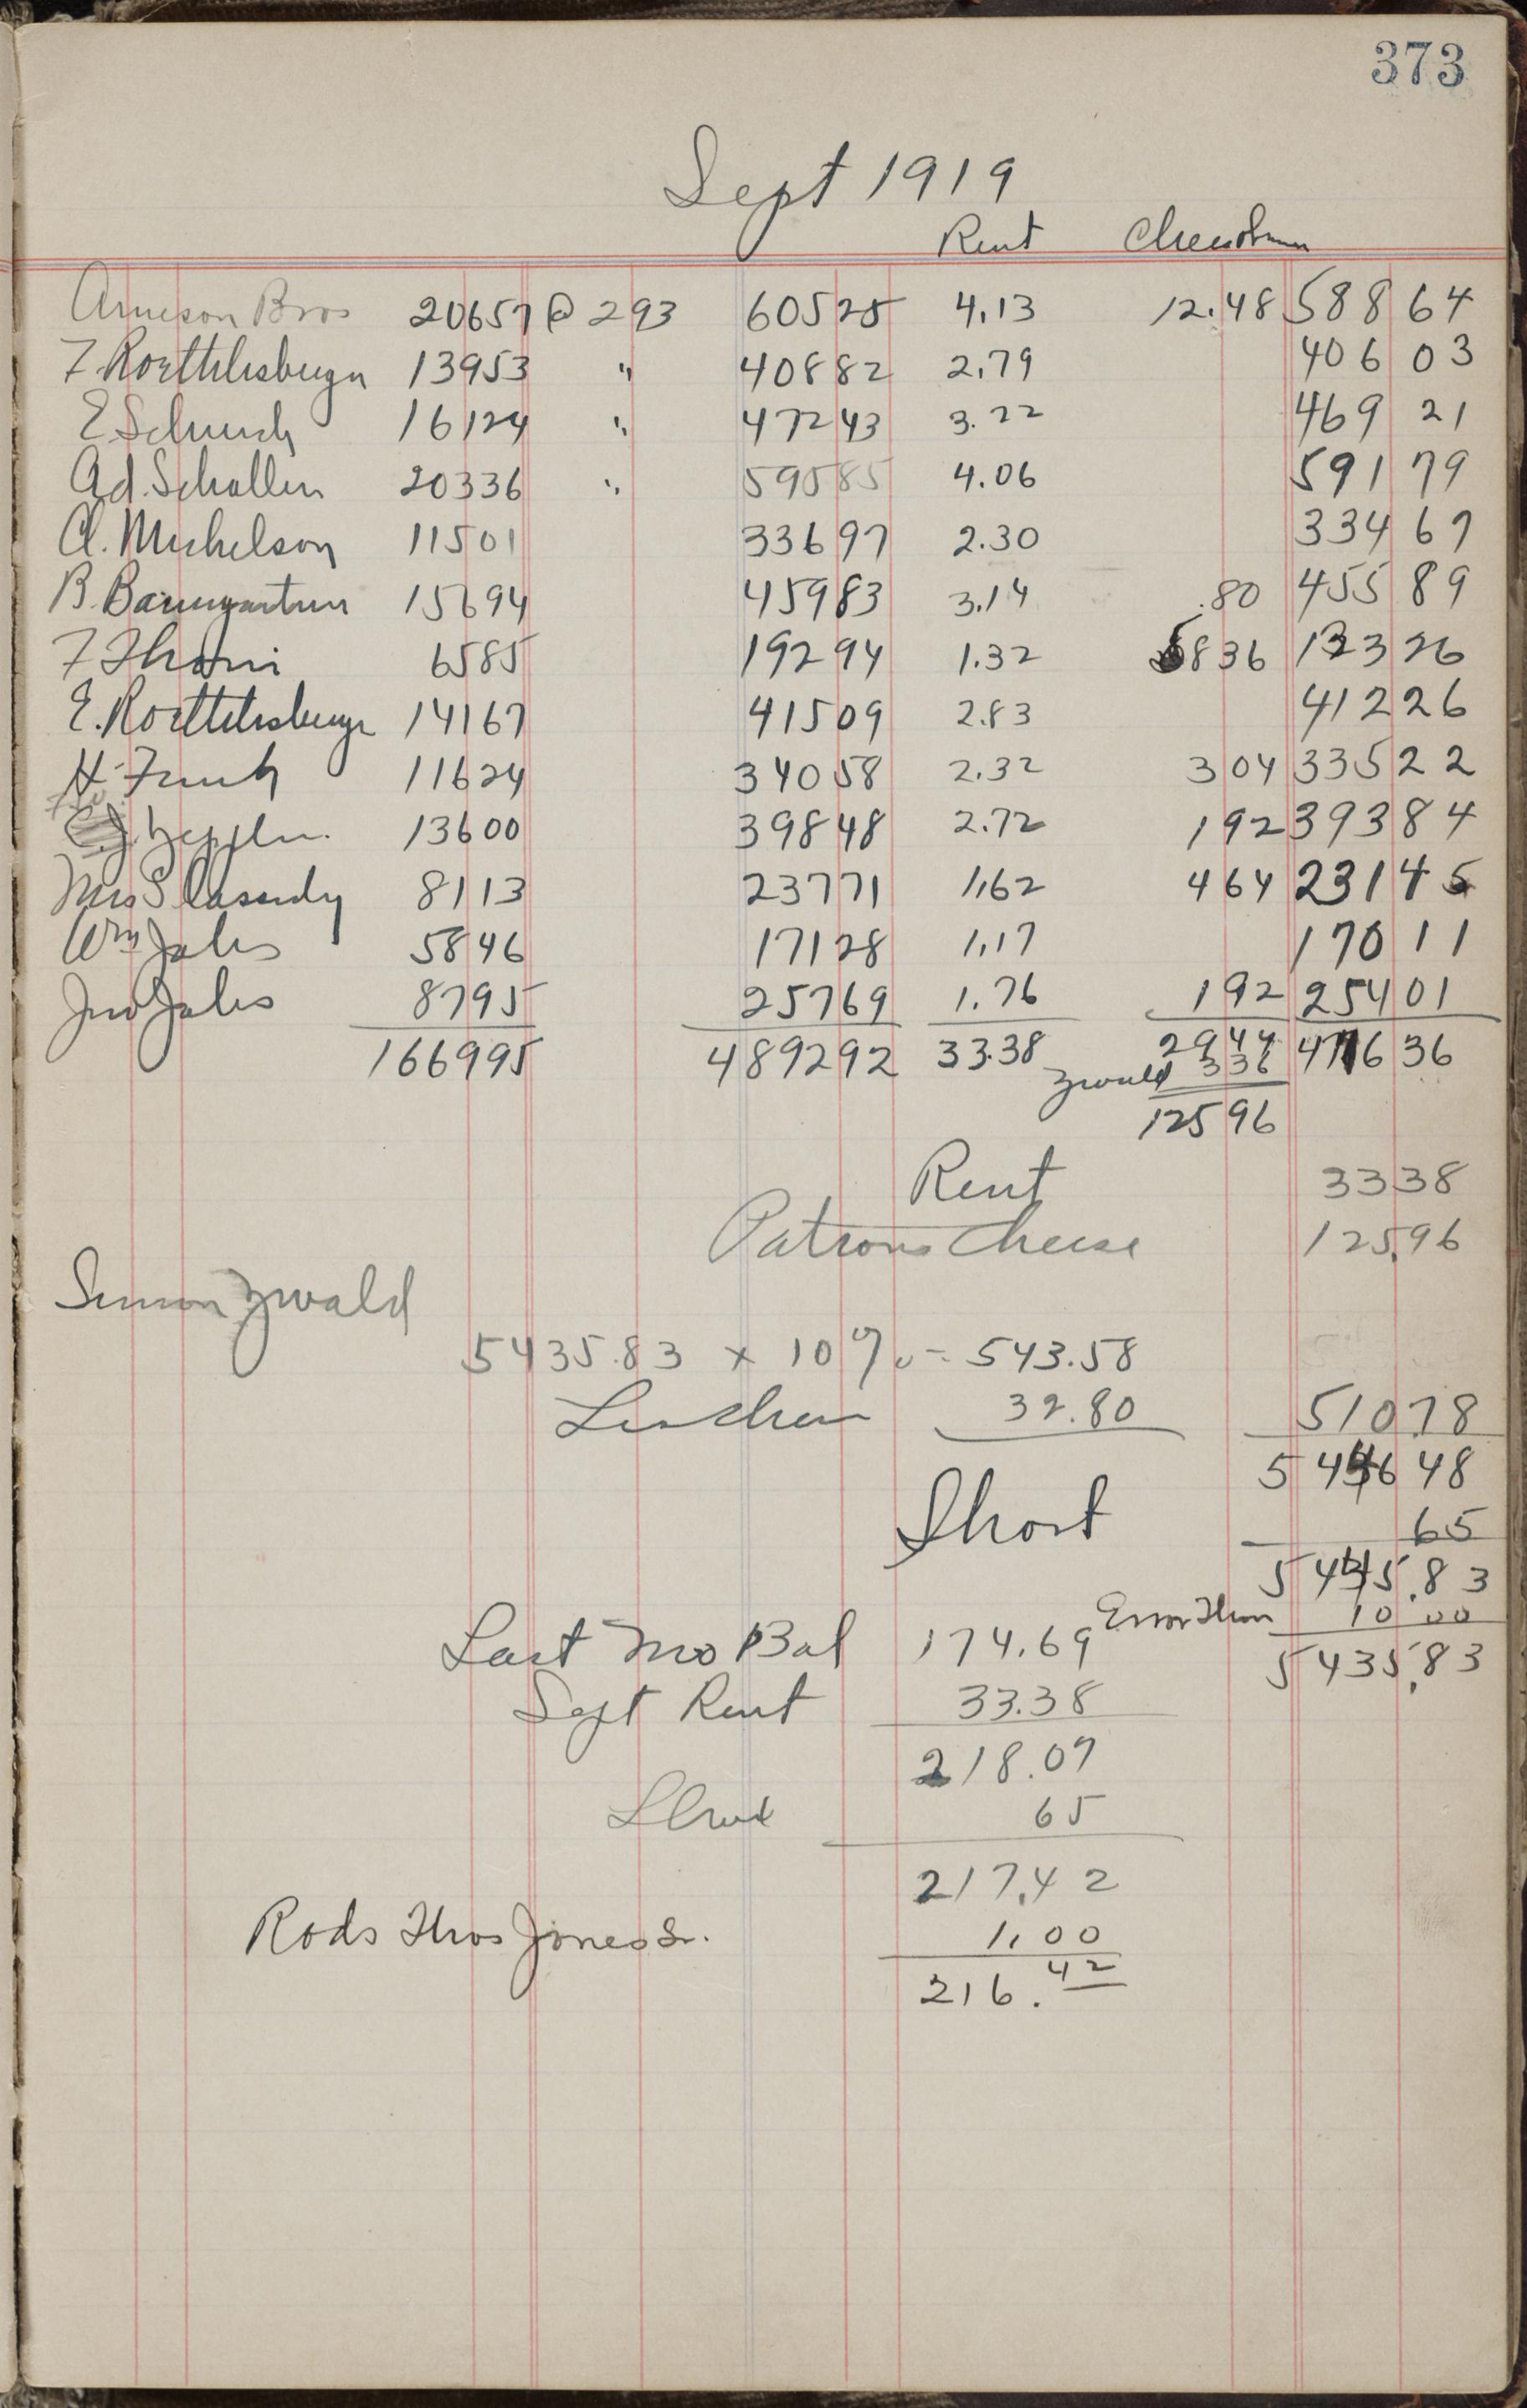 373
Sept 1919
Rent
Arneson Bros 20657 @ 293 60525 4.13 12.48 588 64
F. Roethlisberger 13953 " 40882 2.79 406 03
E Schurch 16124 " 47243 3.22 469 21
Ad. Schallen 20336 " 59585 4.06 591 79
A. Michelson 11501 33697 2.30 334 67
B. Baumgartner 15694 45983 3.14 .80 455 89
F Thoni 6585 19294 1.32 5836 133 26
E. Roethlisberger 14167 41509 2.83 412 26
H. Funk 11624 34058 2.32 304 335 22
13600 39848 2.72 192 393 84
Mrs S Cassidy 8113 23771 1.62 464 231 45
Wm Jabs 5846 17128 1.17 170 11
Jno Jabs 8795 25769 1.76 192 254 01
166995 489292 33.38 2944 4776 36
Zwald 336
125 96
Rent 33 38
Patrons Cheese 125.96
Simon Zwald
5435.83 x 10% = 543.58
Less cheese 32.80 510.78
5446 48
Short 65
5445.83
Last Mo Bal 174.69 Error Thoni 10 00
5435.83
Sept Rent 33.38
218.07
Short 65
217.42
Rods Thos Jones Sr. 1.00
216.42